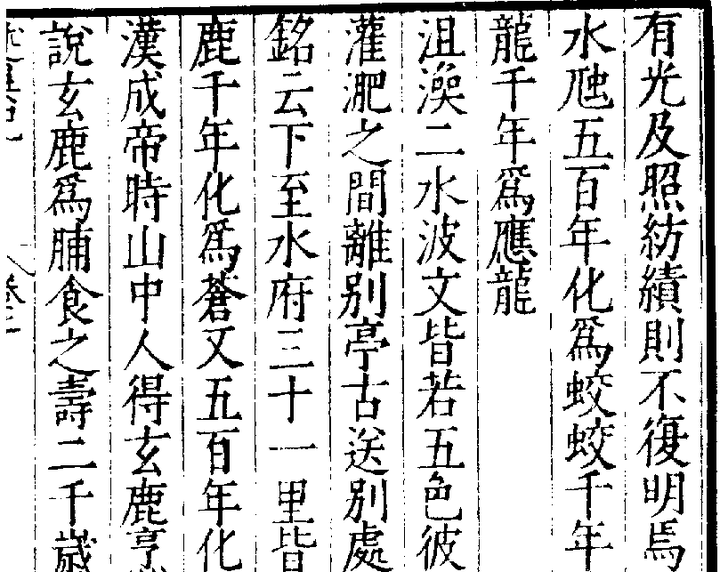 有光及照紡績則不復明焉
水虺五百年化爲蛟蛟千年
龍千年爲應龍
沮澡二水波文皆若五色彼
灌淝之間離別亭古送別處
銘云下至水府三十一里皆
鹿千年化爲蒼又五百年化
漢成帝時山中人得玄鹿亨
說玄鹿爲脯食之壽二千歲